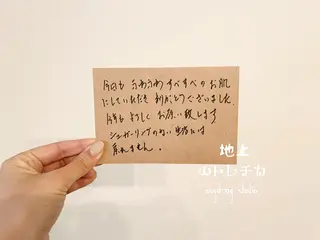 今回も ふわふわ すべすべ の お肌
にしていただき ありがとうございました。
今年も よろしく お願い致します
シュガーリングのない 生活には
戻れません。
地上